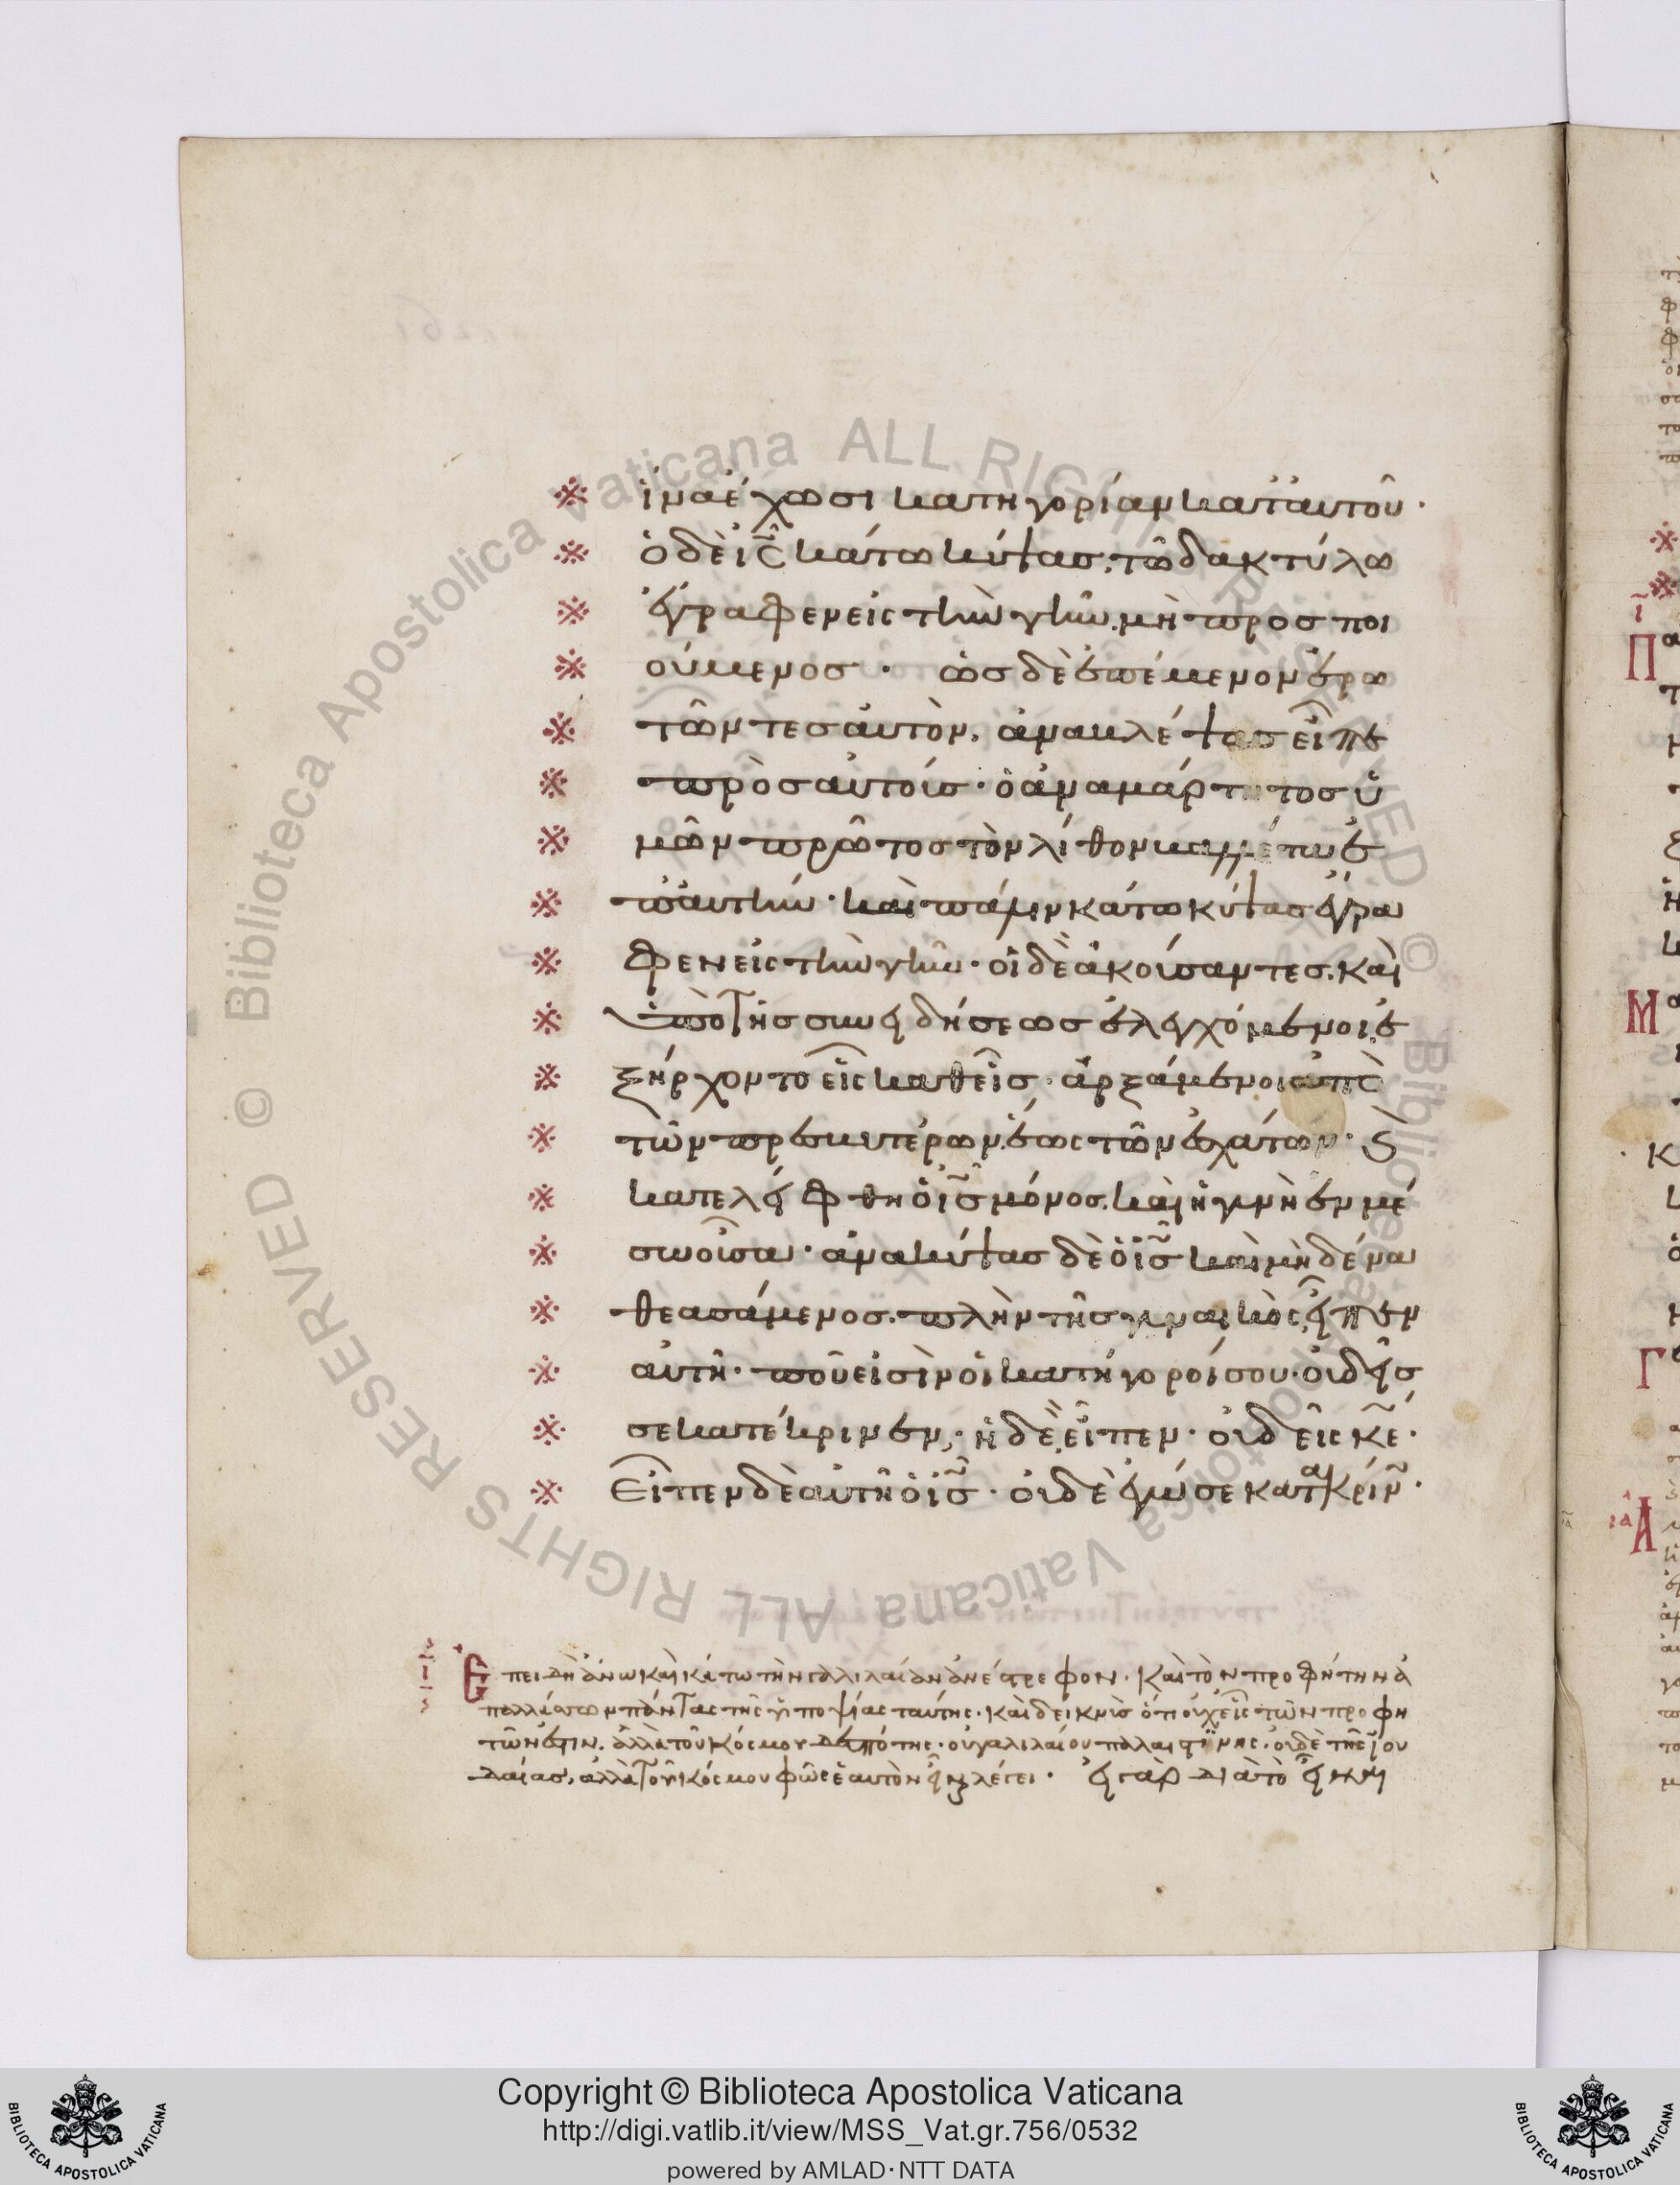 ἵνα ἔχωσι κατηγορίαν κατ' αὐτοῦ·
ὁ δὲ ις κάτω κύψας, τῶ δακτύλω
ἔγραφεν εἰς τὴν γῆν. μὴ προσποι
ούμενος· ὡς δὲ ἐπέμενον ἐρω
τῶντες αὐτὸν, ἀνακλέψας εἶπε
πρὸς αὐτούς· ὁ ἀναμάρτητος ὑ
μῶν πρῶτος τὸν λίθον
ἐπ' αὐτήν· καὶ πάλιν κάτω κύψας ἔγρα
φεν εἰς τὴν γῆν· οἱ δὲ ἀκούσαντες. καὶ
ὑπὸ τῆς συνειδήσεως ἐλεγχόμενοι, ἐ
ξήρχοντο εἷς καθεῖς· ἀρξάμενοι ἀπὸ
τῶν πρεσβυτέρων, ἕως τῶν ἐσχάτων· Ϗ
κατελείφθη ὁ ις μόνος. καὶ ἡ γυνὴ ἐν μέ
σω οὖσα· ἀνακύψας δὲ ὁ ις καὶ μηδένα
θεασάμενος. πλὴν τῆς γυναικὸς, εἶπεν
αὐτῆ· ποῦ εἰσὶν οἱ κατήγοροί σου· οὐδείς
σε κατέκρινεν; ἡ δὲ εἶπεν· οὐδεὶς κε·
Εἶπεν δὲ αὐτῆ ὁ ις· οὐδὲ ἐγώ σε κατακρίν·
Ἐπειδὴ ἄνω καὶ κάτω τὴν γαλιλαίαν ἀνέστρεφον· καὶ τὸν προφήτην ἀ
παλλάττων πάντας τῆς ὑποψίας ταύτης· καὶ δεικνὺς ὅτι οὐχ εἷς τῶν προφη
τῶν ἐστιν. ἀλλὰ τοῦ κόσμου δεσπότης· οὐ γαλιλαίου παλαιστίνης· οὐδὲ τῆς ἰου
δαίας, ἀλλὰ τοῦ κόσμου φῶς ἑαυτὸν εἶναι λέγει· εἰ γὰρ διὰ τὸ εἶναι
Copyright © Biblioteca Apostolica Vaticana
http://digi.vatlib.it/view/MSS_Vat.gr.756/0532
powered by AMLAD·NTT DATA